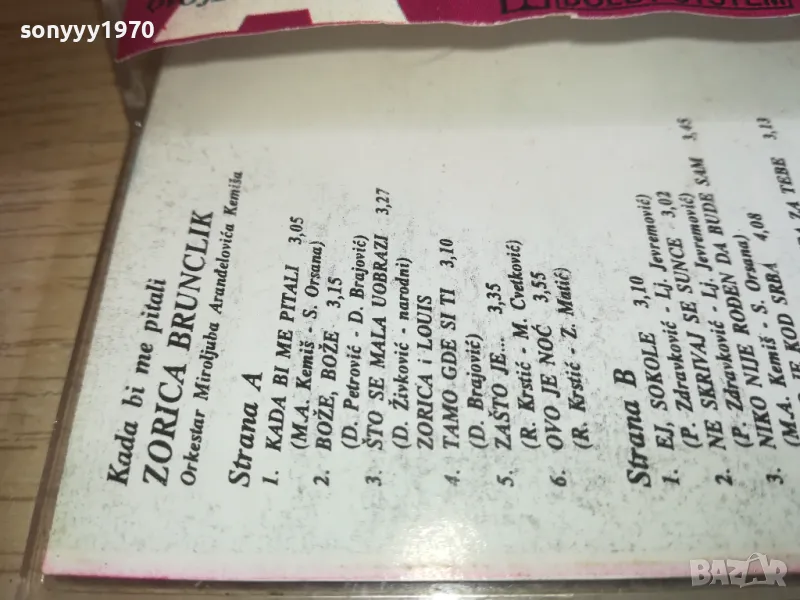 sonyyy1970
DOLBY SYSTEM
Kada bi me pitali
ZORICA BRUNCLIK
Orkestar Miroljuba Aranđelovića Kemiša
Strana A
1. KADA BI ME PITALI 3,05
(M.A. Kemiš - S. Orsana)
2. BOŽE, BOŽE 3,15
(D. Petrović - D. Brajović)
3. ŠTO SE MALA UOBRAZI 3,27
(D. Živković - narodni)
ZORICA i LOUIS
4. TAMO GDE SI TI 3,10
(D. Brajović)
5. ZAŠTO JE... 3,35
(R. Krstić - M. Cvetković)
6. OVO JE NOĆ 3,55
(R. Krstić - Z. Matić)
Strana B
1. EJ, SOKOLE 3,10
(P. Zdravković - Lj. Jevremović)
NE SKRIVAJ SE SUNCE 3,02
2. (P. Zdravković - Lj. Jevremović)
NIKO NIJE ROĐEN DA BUDE SAM 3,45
3. (M.A. Kemiš - S. Orsana)
JE KOD SRBA 4,08
(M.A.
ZA TEBE 3,13
BAZAR